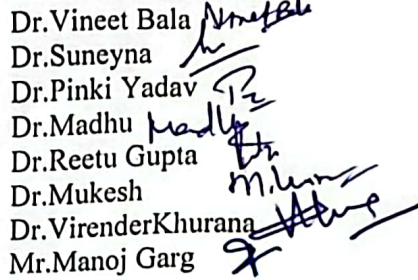 Dr.Vineet Bala
Dr.Suneyna
Dr.Pinki Yadav
Dr.Madhu Madhu
Dr.Reetu Gupta
Dr.Mukesh
Dr.VirenderKhurana
Mr.Manoj Garg